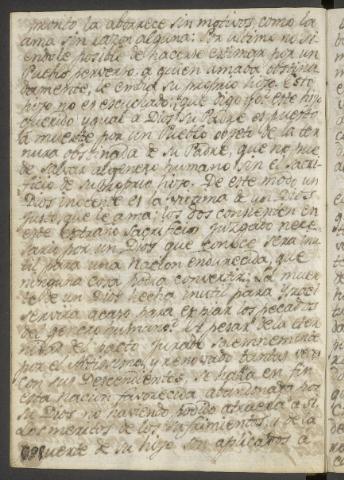 pronto la aborrece sin motivos, como la
ama sin razon alguna: Por ultimo no si
endole posible de hacerse estimar por un
Pueblo perverso, a quien amaba obstina
damente, le embia su proprio hijo. Este
hijo no es escuchado; que digo yo: este hijo
querido yqual a Dios su Padre es puesto
a muerte por un Pueblo objeto de la ter
nura obstinada de su Padre, que no pue
de salvar al genero humano sin el sacri
ficio de su proprio hijo. De este modo un
Dios inocente es la victima de un Dios
justo, que le ama; los dos consienten en
este estraño sacrificio juzgado nece
sario por un Dios que conoce sera inu
til para una nacion endurecida, que
ninguna cosa podia convertir. La muer
te de un Dios hecha inutil para Ysrael
servira acaso para expiar los pecados
del genero humano? A pesar de la eter
nidad del pacto jurado solemnemente
por el Altisimo, y renovado tantas veces
con sus Descendientes, se halla en fin
esta nacion favorecida abandonada por
su Dios no haviendo podido atraerla a si.
Los meritos de los sufrimientos, y de la
muerte de su hijo son aplicados a